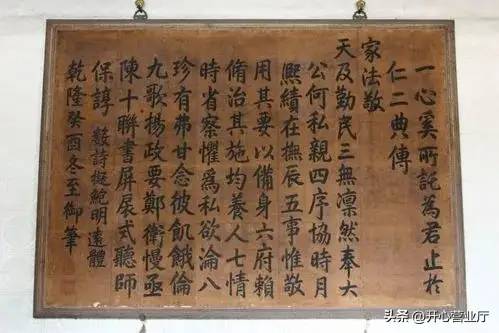 一心奚所託為君止於
仁二典傳
家法敬
天及勤民三無凛然奉大
公何私親四序協時月
熈績在撫辰五事惟敬
用其要以備身六府賴
脩治其施均養人七情
時省察懼爲私欲淪八
珍有弗甘念彼飢餓倫
九歌揚政要鄭衛慢亟
陳十聯書屏扆式聽師
保諄 數詩擬鮑明遠體
乾隆癸酉冬至御筆
头条 @开心营业厅